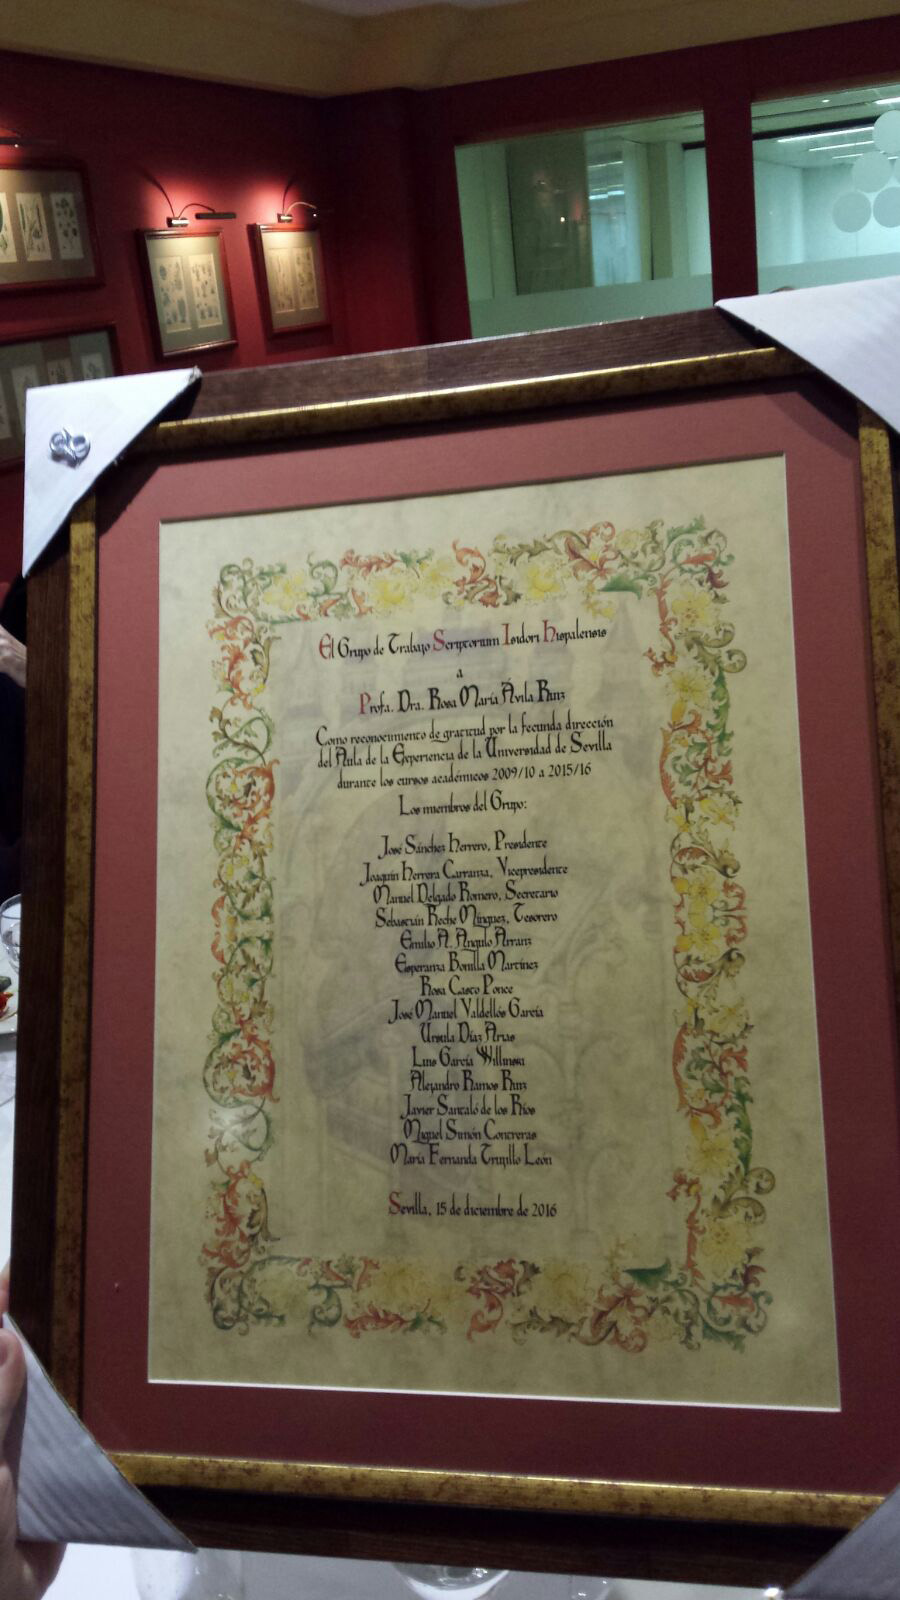 El Grupo de Trabajo Scriptorium Isidori Hispalensis
a
Profa. Dra. Rosa María Ávila Ruiz
Como reconocimiento de gratitud por la fecunda dirección
del Aula de la Experiencia de la Universidad de Sevilla
durante los cursos académicos 2009/10 a 2015/16
Los miembros del Grupo:
José Sánchez Herrero, Presidente
Joaquín Herrera Carranza, Vicepresidente
Manuel Delgado Romero, Secretario
Sebastián Reche Mínguez, Tesorero
Emilio A. Angulo Arranz
Esperanza Bonilla Martínez
Rosa Casto Ponce
José Manuel Valdellós García
Ursula Díaz Arias
Luis García
Alejandro Ramos Ruiz
Javier Santaló de los Ríos
Miguel Simón Contreras
María Fernanda Trujillo León
Sevilla, 15 de diciembre de 2016